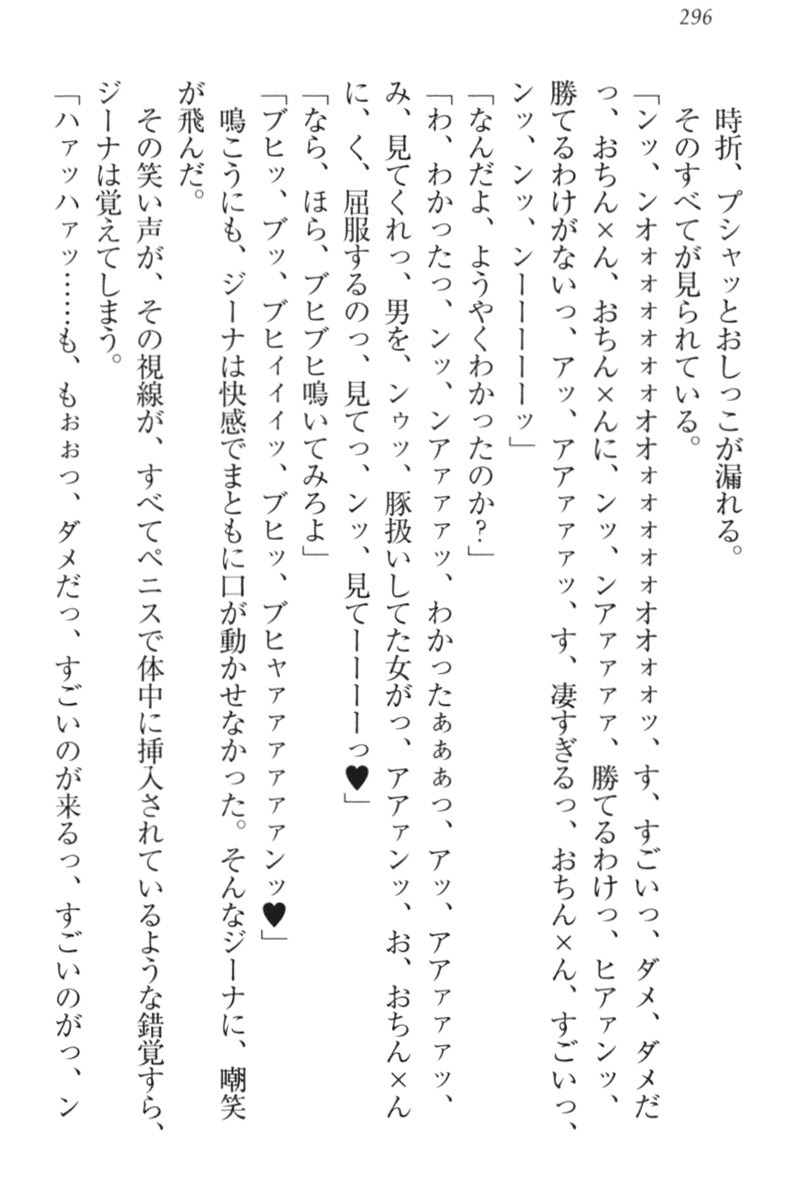 296
時折、プシャッとおしっこが漏れる。
そのすべてが見られている。
「ンッ、ンオォォォォォオオォォォォォオオォォッ、す、すごいっ、ダメ、ダメだ
っ、おちん×ん、おちん×んに、ンッ、ンアァァァァ、勝てるわけっ、ヒアァンッ、
勝てるわけがないっ、アッ、アアァァァァッ、す、凄すぎるっ、おちん×ん、すごいっ、
ンッ、ンッ、ンーーーーーッ」
「なんだよ、ようやくわかったのか？」
「わ、わかったっ、ンッ、ンアァァァッ、わかったぁぁぁっ、アッ、アアァァァァッ、
み、見てくれっ、男を、ンゥッ、豚扱いしてた女がっ、アアァンッ、お、おちん×ん
に、く、屈服するのっ、見てっ、ンッ、見てーーーーっ♥」
「なら、ほら、ブヒブヒ鳴いてみろよ」
「ブヒッ、ブッ、ブヒィィィッ、ブヒッ、ブヒャァァァァァァンッ♥」
鳴こうにも、ジーナは快感でまともに口が動かせなかった。そんなジーナに、嘲笑
が飛んだ。
その笑い声が、その視線が、すべてペニスで体中に挿入されているような錯覚すら、
ジーナは覚えてしまう。
「ハァッハァッ……も、もぉぉっ、ダメだっ、すごいのが来るっ、すごいのがっ、ン